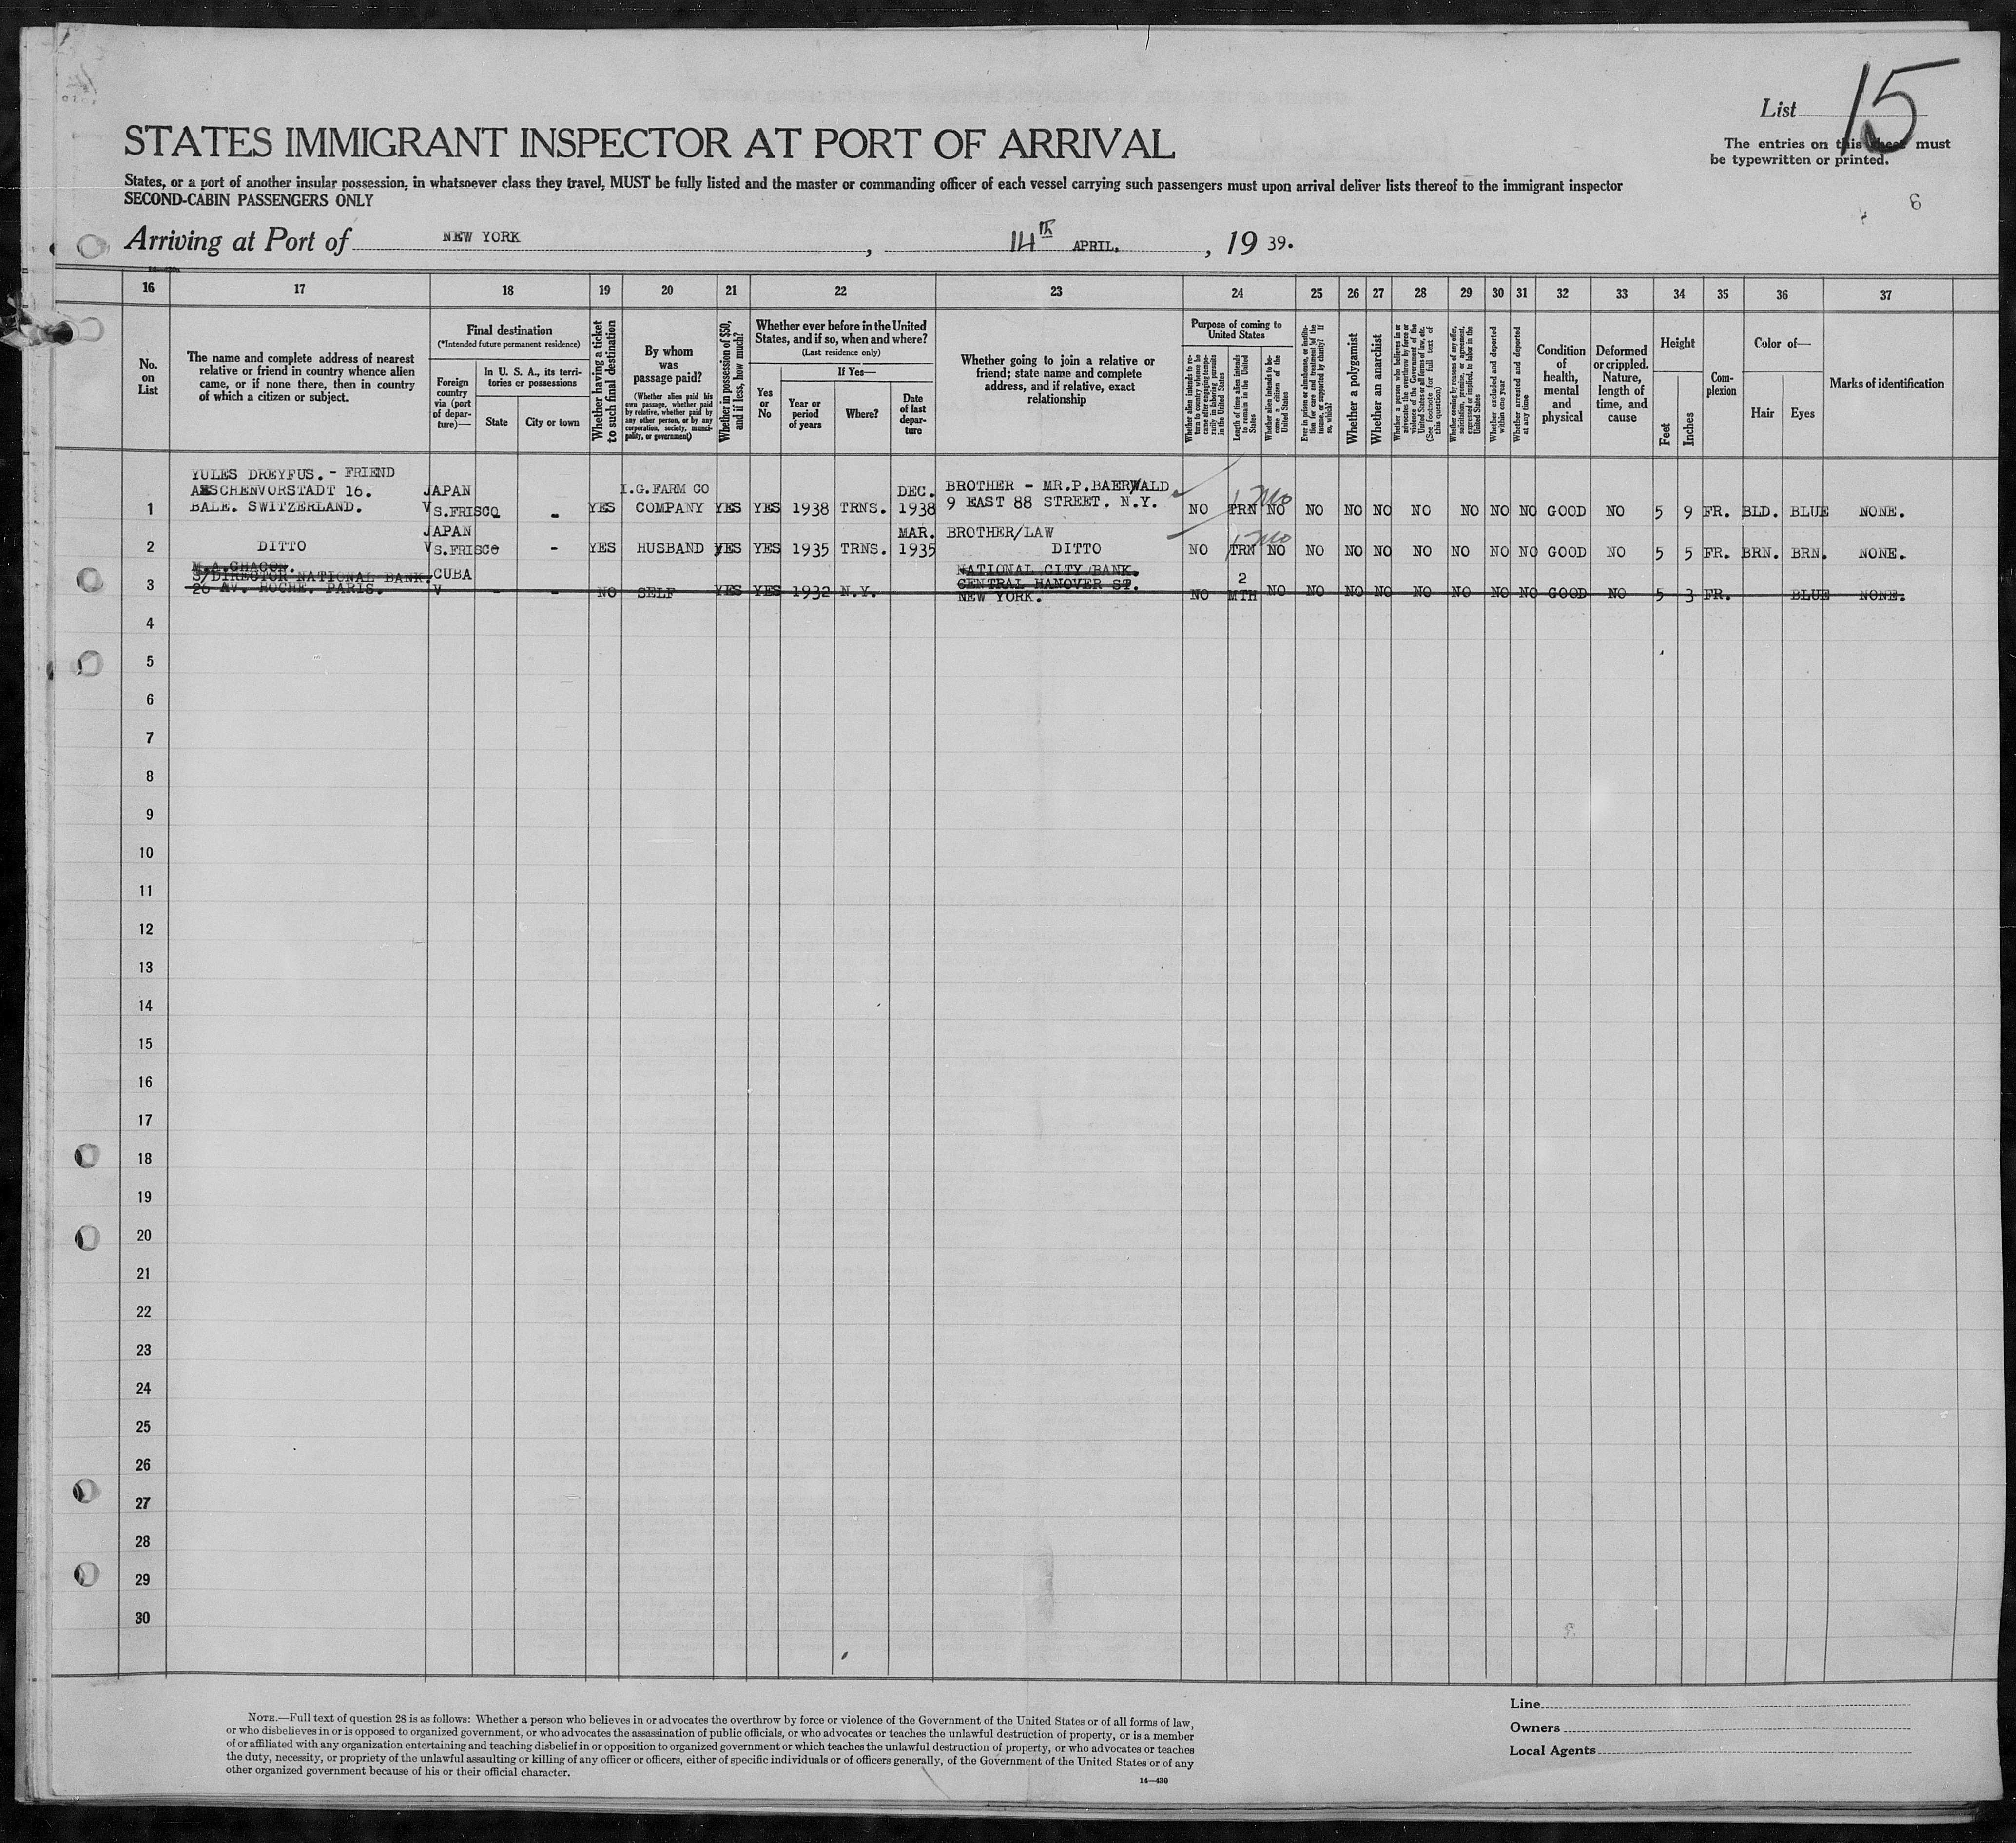 List 15
The entries on this sheet must
be typewritten or printed.
STATES IMMIGRANT INSPECTOR AT PORT OF ARRIVAL
States, or a port of another insular possession, in whatsoever class they travel, MUST be fully listed and the master or commanding officer of each vessel carrying such passengers must upon arrival deliver lists thereof to the immigrant inspector
SECOND-CABIN PASSENGERS ONLY
Arriving at Port of NEW YORK, 14th APRIL, 19 39.
16 17 18 19 20 21 22 23 24 25 26 27 28 29 30 31 32 33 34 35 36 37
No. on List
The name and complete address of nearest
relative or friend in country whence alien
came, or if none there, then in country
of which a citizen or subject.
Final destination
(*Intended future permanent residence)
Foreign country via (port of departure)—
In U. S. A., its territories or possessions
State
City or town
Whether having a ticket to such final destination
By whom was passage paid?
(Whether alien paid his own passage, whether paid by relative, whether paid by any other person, or by any corporation, society, municipality, or government)
Whether in possession of $50, and if less, how much?
Whether ever before in the United States, and if so, when and where?
(Last residence only)
Yes or No
If Yes—
Year or period of years
Where?
Date of last departure
Whether going to join a relative or
friend; state name and complete
address, and if relative, exact
relationship
Purpose of coming to United States
Whether alien intends to return to country whence he came after engaging temporarily in laboring pursuits in the United States
Length of time alien intends to remain in the United States
Whether alien intends to become a citizen of the United States
Ever in prison or almshouse, or institution for care and treatment of the insane, or supported by charity? If so, which?
Whether a polygamist
Whether an anarchist
Whether a person who believes in or advocates the overthrow by force or violence of the Government of the United States or all forms of law, etc. (See footnote for full text of this question)
Whether coming by reasons of any offer, solicitation, promise, or agreement, expressed or implied, to labor in the United States
Whether excluded and deported within one year
Whether arrested and deported at any time
Condition of health, mental and physical
Deformed or crippled. Nature, length of time, and cause
Height
Feet
Inches
Complexion
Color of—
Hair
Eyes
Marks of identification
1 YULES DREYFUS. - FRIEND
AESCHENVORSTADT 16.
BALE. SWITZERLAND. JAPAN V S.FRISCO - YES I.G.FARM CO COMPANY YES YES 1938 TRNS. DEC. 1938 BROTHER - MR.P.BAERWALD
9 EAST 88 STREET. N.Y. NO TRN NO NO NO NO NO NO NO NO GOOD NO 5 9 FR. BLD. BLUE NONE.
2 DITTO JAPAN V S.FRISCO - YES HUSBAND YES YES 1935 TRNS. MAR. 1935 BROTHER/LAW
DITTO NO TRN NO NO NO NO NO NO NO NO GOOD NO 5 5 FR. BRN. BRN. NONE.
3 M.A.CHACON.
S/DIRECTOR NATIONAL BANK.
26 AV. HOCHE. PARIS. CUBA V - - NO SELF YES YES 1932 N.Y. NATIONAL CITY BANK.
CENTRAL HANOVER ST.
NEW YORK. NO 2 MTH NO NO NO NO NO NO NO NO GOOD NO 5 3 FR. BLUE NONE.
4
5
6
7
8
9
10
11
12
13
14
15
16
17
18
19
20
21
22
23
24
25
26
27
28
29
30
NOTE.—Full text of question 28 is as follows: Whether a person who believes in or advocates the overthrow by force or violence of the Government of the United States or of all forms of law,
or who disbelieves in or is opposed to organized government, or who advocates the assassination of public officials, or who advocates or teaches the unlawful destruction of property, or is a member
of or affiliated with any organization entertaining and teaching disbelief in or opposition to organized government or which teaches the unlawful destruction of property, or who advocates or teaches
the duty, necessity, or propriety of the unlawful assaulting or killing of any officer or officers, either of specific individuals or of officers generally, of the Government of the United States or of any
other organized government because of his or their official character.
14—430
Line
Owners
Local Agents